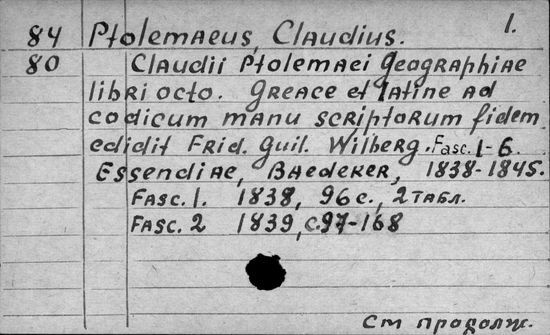 1.
84 Ptolemaeus, Claudius.
80 Claudii Ptolemaei Geographiae
libri octo. Greace et latine ad
codicum manu scriptorum fidem
edidit Frid. Guil. Wilberg. Fasc. 1-6.
Essendiae, Baedeker, 1838-1845.
Fasc. 1. 1838, 96 с., 2 табл.
Fasc. 2 1839, с. 97-168
См продолж.